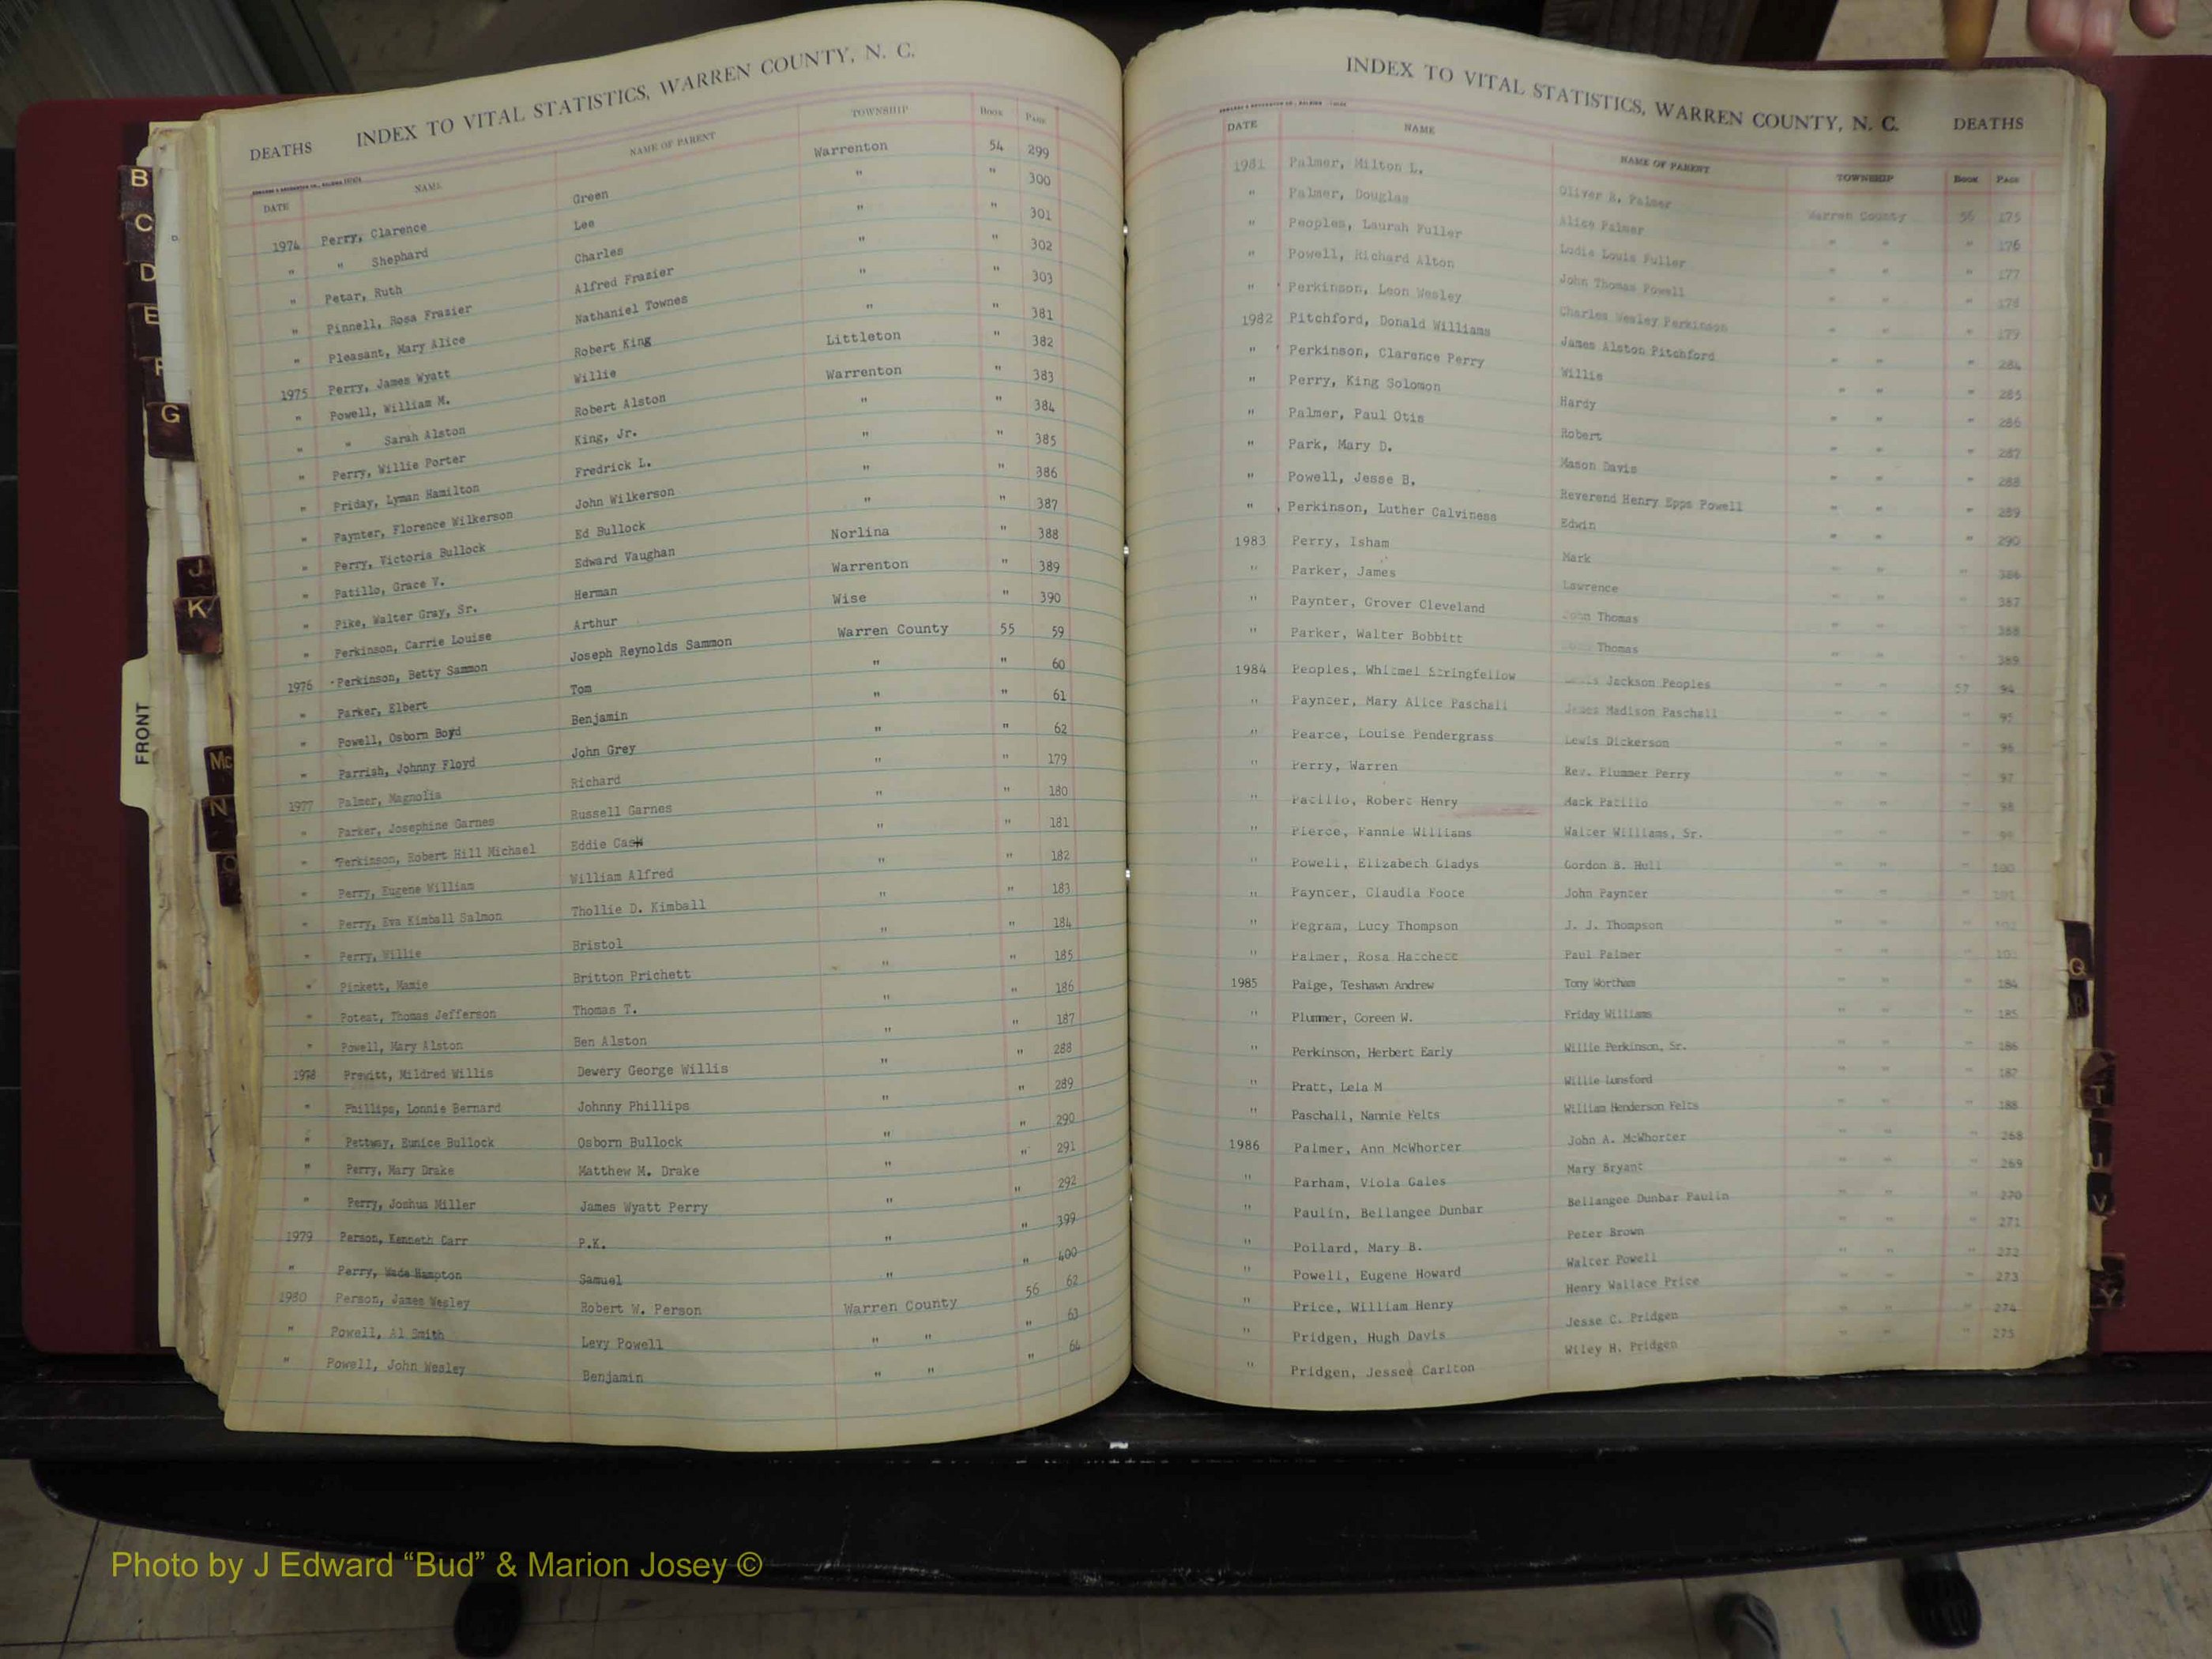 DEATHS INDEX TO VITAL STATISTICS, WARREN COUNTY, N. C.
DATE NAME NAME OF PARENT TOWNSHIP BOOK PAGE
1974 Perry, Clarence Green Warrenton 54 299
" " Shephard Lee " " 300
" Petar, Ruth Charles " " 301
" Pinnell, Rosa Frazier Alfred Frazier " " 302
" Pleasant, Mary Alice Nathaniel Townes " " 303
1975 Perry, James Wyatt Robert King " " 381
" Powell, William M. Willie Littleton " 382
" " Sarah Alston Robert Alston Warrenton " 383
" Perry, Willie Porter King, Jr. " " 384
" Priday, Lyman Hamilton Fredrick L. " " 385
" Paynter, Florence Wilkerson John Wilkerson " " 386
" Perry, Victoria Bullock Ed Bullock " " 387
" Patillo, Grace V. Edward Vaughan Norlina " 388
" Pike, Walter Gray, Sr. Herman Warrenton " 389
" Perkinson, Carrie Louise Arthur Wise " 390
1976 Perkinson, Betty Sammon Joseph Reynolds Sammon Warren County 55 59
" Parker, Elbert Tom " " 60
" Powell, Osborn Boyd Benjamin " " 61
" Parrish, Johnny Floyd John Grey " " 62
1977 Palmer, Magnolia Richard " " 179
" Parker, Josephine Garnes Russell Garnes " " 180
" Perkinson, Robert Hill Michael Eddie Cash " " 181
" Perry, Eugene William William Alfred " " 182
" Perry, Eva Kimball Salmon Thollie D. Kimball " " 183
" Perry, Willie Bristol " " 184
" Pinkett, Mamie Britton Prichett " " 185
" Poteat, Thomas Jefferson Thomas T. " " 186
" Powell, Mary Alston Ben Alston " " 187
1978 Prewitt, Mildred Willis Dewery George Willis " " 288
" Phillips, Lonnie Bernard Johnny Phillips " " 289
" Pettway, Eunice Bullock Osborn Bullock " " 290
" Perry, Mary Drake Matthew M. Drake " " 291
" Perry, Joshua Miller James Wyatt Perry " " 292
1979 Person, Kenneth Carr P.K. " " 399
" Perry, Wade Hampton Samuel " " 400
1980 Person, James Wesley Robert W. Person Warren County 56 62
" Powell, Al Smith Levy Powell " " " 63
" Powell, John Wesley Benjamin " " " 64
INDEX TO VITAL STATISTICS, WARREN COUNTY, N. C. DEATHS
DATE NAME NAME OF PARENT TOWNSHIP BOOK PAGE
1981 Palmer, Milton L. Oliver R. Palmer Warren County 56 175
" Palmer, Douglas Alice Palmer " " " 176
" Peoples, Laurah Fuller Ludie Louis Fuller " " " 177
" Powell, Richard Alton John Thomas Powell " " " 178
" Perkinson, Leon Wesley Charles Wesley Perkinson " " " 179
1982 Pitchford, Donald Williams James Alston Pitchford " " " 284
" Perkinson, Clarence Perry Willie " " " 285
" Perry, King Solomon Hardy " " " 286
" Palmer, Paul Otis Robert " " " 287
" Park, Mary D. Mason Davis " " " 288
" Powell, Jesse B. Reverend Henry Epps Powell " " " 289
" Perkinson, Luther Calviness Edwin " " " 290
1983 Perry, Isham Mark " " " 386
" Parker, James Lawrence " " " 387
" Paynter, Grover Cleveland John Thomas " " " 388
" Parker, Walter Bobbitt Thomas " " " 389
1984 Peoples, Whitmel Stringfellow Jackson Peoples " " 57 94
" Paynter, Mary Alice Paschall James Madison Paschall " " " 95
" Pearce, Louise Pendergrass Lewis Dickerson " " " 96
" Perry, Warren Rev. Plummer Perry " " " 97
" Patillo, Robert Henry Mack Patillo " " " 98
" Pierce, Fannie Williams Walter Williams, Sr. " " " 99
" Powell, Elizabeth Gladys Gordon B. Hull " " " 100
" Paynter, Claudia Foote John Paynter " " " 101
" Pegram, Lucy Thompson J. J. Thompson " " " 102
" Palmer, Rosa Hatchett Paul Palmer " " " 103
1985 Paige, Teshawn Andrew Tony Wortham " " " 184
" Plummer, Coreen W. Friday Williams " " " 185
" Perkinson, Herbert Early Willie Perkinson, Sr. " " " 186
" Pratt, Lela M Willie Lunsford " " " 187
" Paschall, Nannie Felts William Henderson Felts " " " 188
1986 Palmer, Ann McWhorter John A. McWhorter " " " 268
" Parham, Viola Gales Mary Bryant " " " 269
" Paulin, Bellangee Dunbar Bellangee Dunbar Paulin " " " 270
" Pollard, Mary B. Peter Brown " " " 271
" Powell, Eugene Howard Walter Powell " " " 272
" Price, William Henry Henry Wallace Price " " " 273
" Pridgen, Hugh Davis Jesse C. Pridgen " " " 274
" Pridgen, Jessee Carlton Wiley H. Pridgen " " " 275
B
C
D
E
F
G
J
K
Mc
N
O
FRONT
Q
R
T
U
V
Y
Photo by J Edward “Bud” & Marion Josey ©